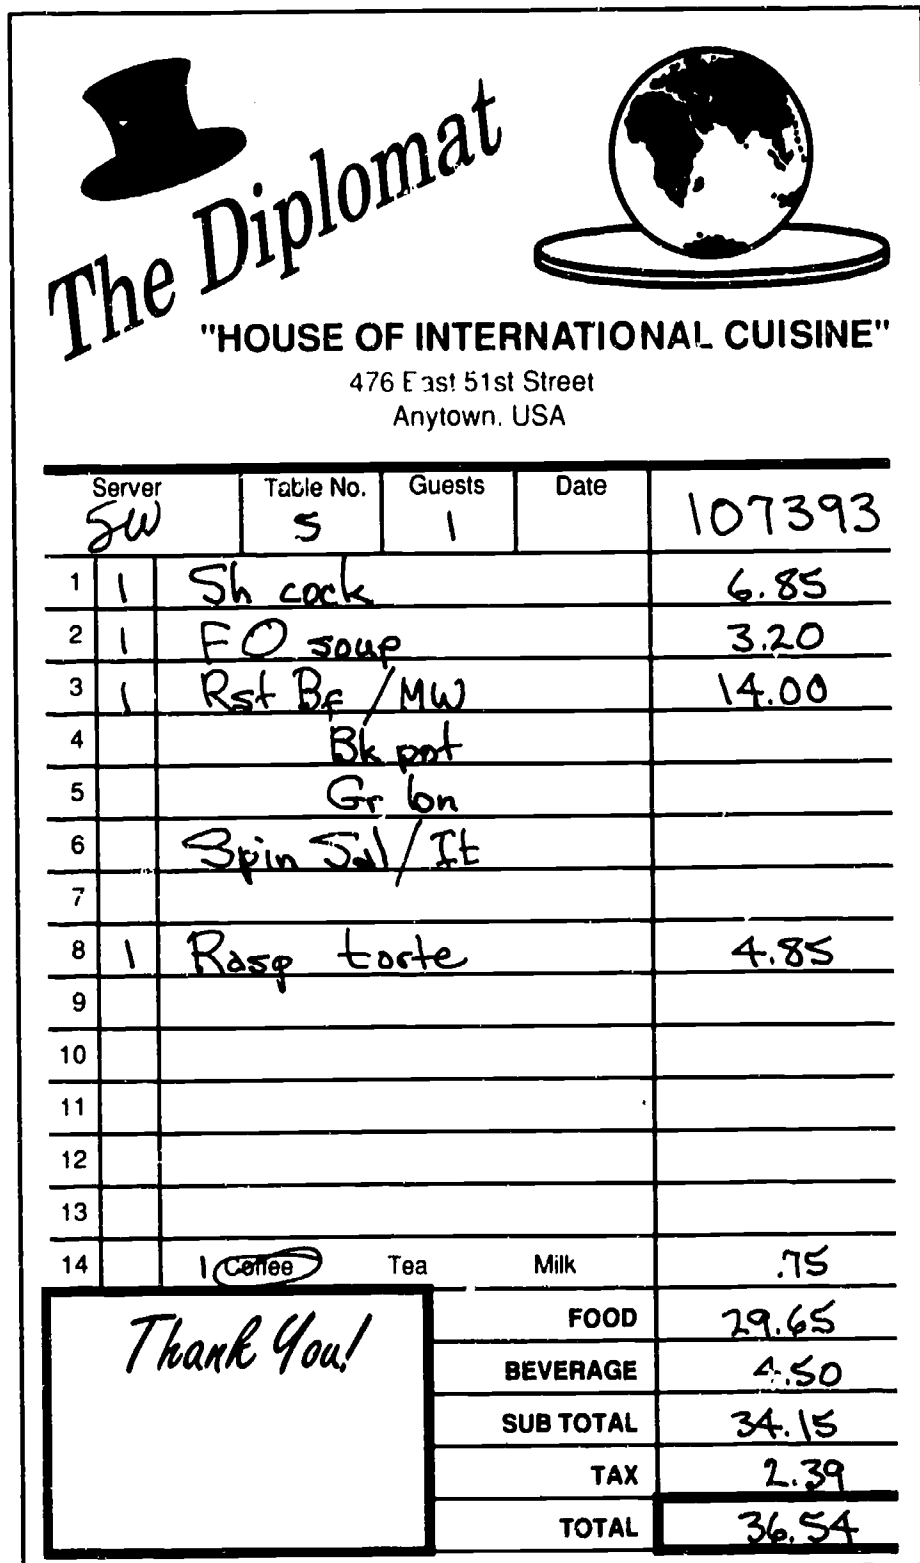 The Diplomat
"HOUSE OF INTERNATIONAL CUISINE"
476 East 51st Street
Anytown. USA
Server Table No. Guests Date
SW 5 1 107393
1 1 Sh cock 6.85
2 1 FO soup 3.20
3 1 Rst Bf / MW 14.00
4 Bk pot
5 Gr bn
6 Spin Sal / It
7
8 1 Rasp torte 4.85
9
10
11
12
13
14 1 Coffee Tea Milk .75
Thank You!
FOOD 29.65
BEVERAGE 4.50
SUB TOTAL 34.15
TAX 2.39
TOTAL 36.54